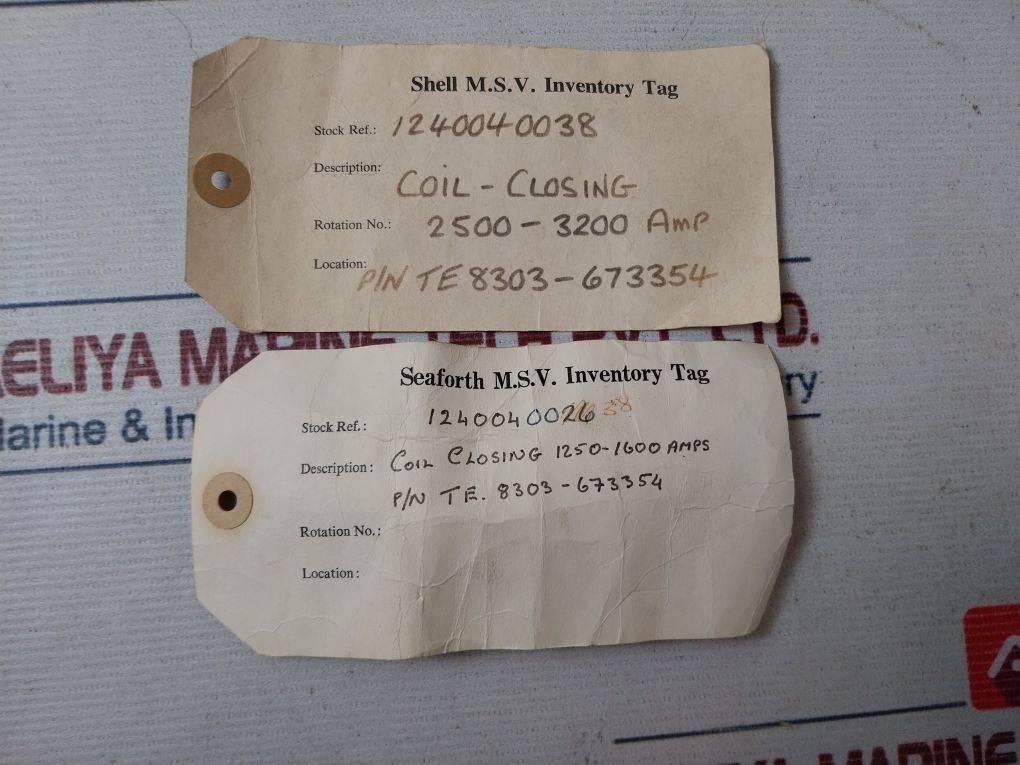 Shell M.S.V. Inventory Tag
Stock Ref.: 1240040038
Description: COIL - CLOSING
Rotation No.: 2500 - 3200 AMP
Location: P/N TE 8303 - 673354
AELIYA MARINE TECH PVT. LTD.
Marine & In ry
Seaforth M.S.V. Inventory Tag
Stock Ref.: 1240040026 38
Description: COIL CLOSING 1250-1600 AMPS
P/N TE. 8303 - 673354
Rotation No.:
Location:
MARINE